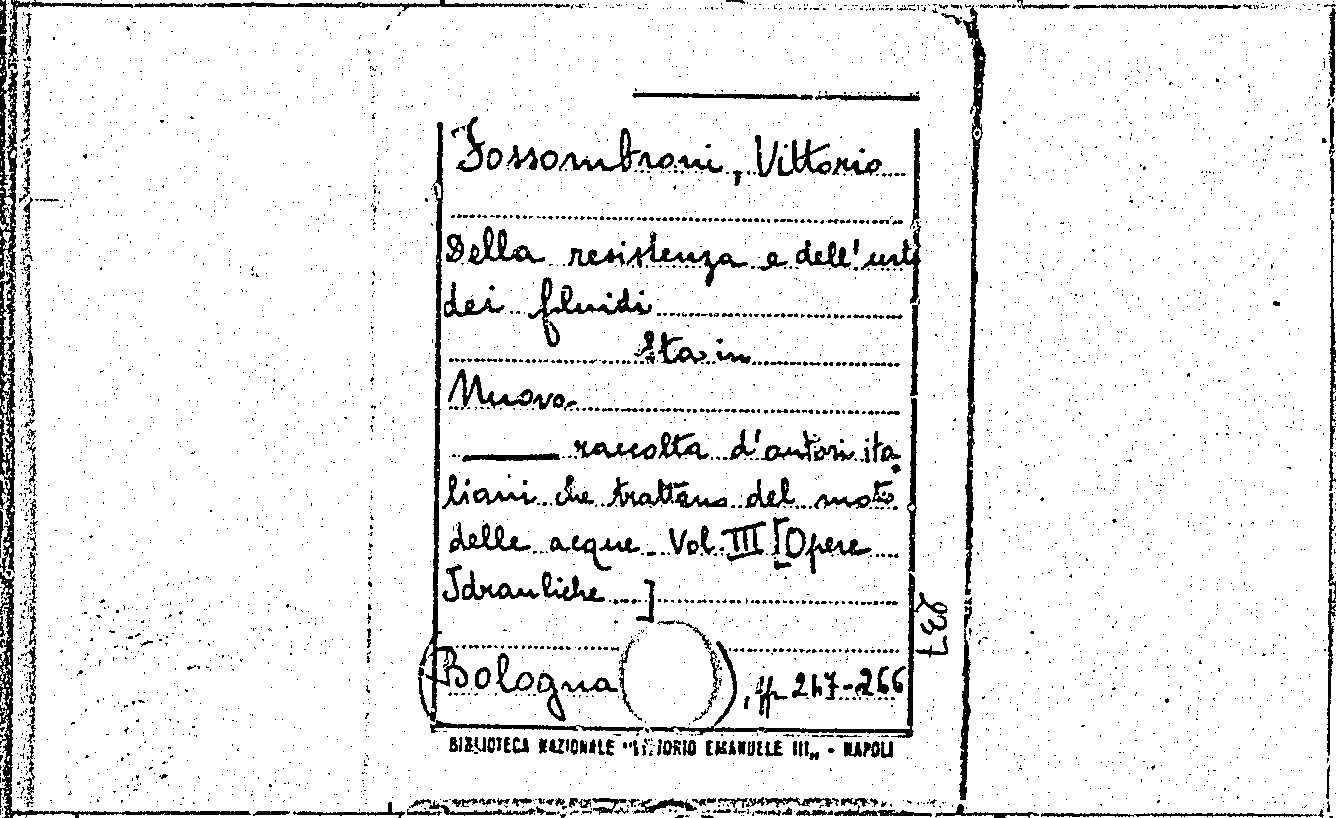 Fossombroni, Vittorio
Della resistenza e dell'urto
dei fluidi
Sta in
Nuova
raccolta d'autori ita
liani che trattano del moto
delle acque Vol. III [Opere
Idrauliche ]
(Bologna ), pp 247-266
BIBLIOTECA NAZIONALE "VITTORIO EMANUELE III„ - NAPOLI